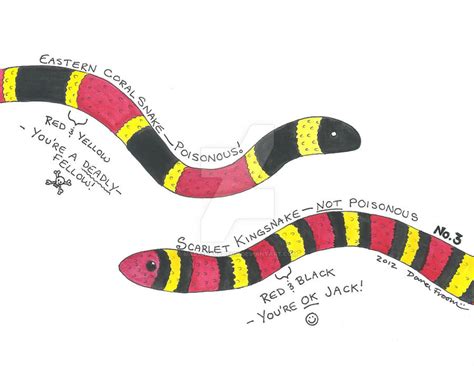 EASTERN CORAL SNAKE — POISONOUS!
RED & YELLOW
- YOU'RE A DEADLY-
FELLOW!
SCARLET KINGSNAKE — NOT POISONOUS
RED & BLACK
- YOU'RE OK JACK!
No. 3
2012 Dana Froom